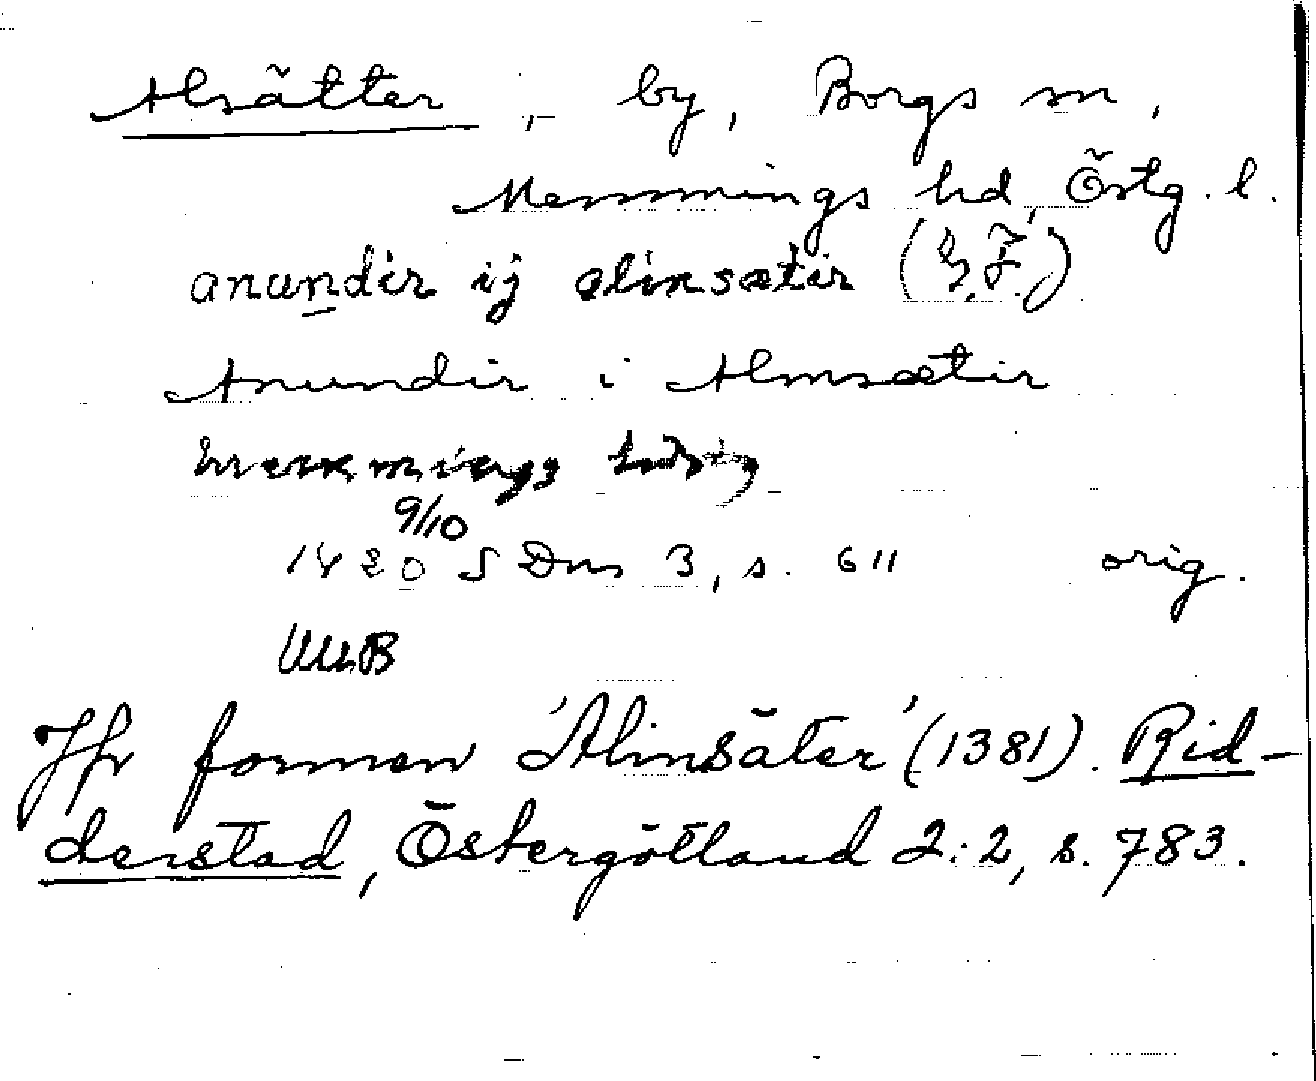 Alsätter, by, Borgs sn,
Memmings hd, Östg. l.
anundir ij alinsætir (G. F.)
Anundir i Almsætir
1420 9/10 SDns 3, s. 611 orig.
Jfr formen 'Alinsäter' (1381). Rid-
derstad, Östergötland 2:2, s. 783.